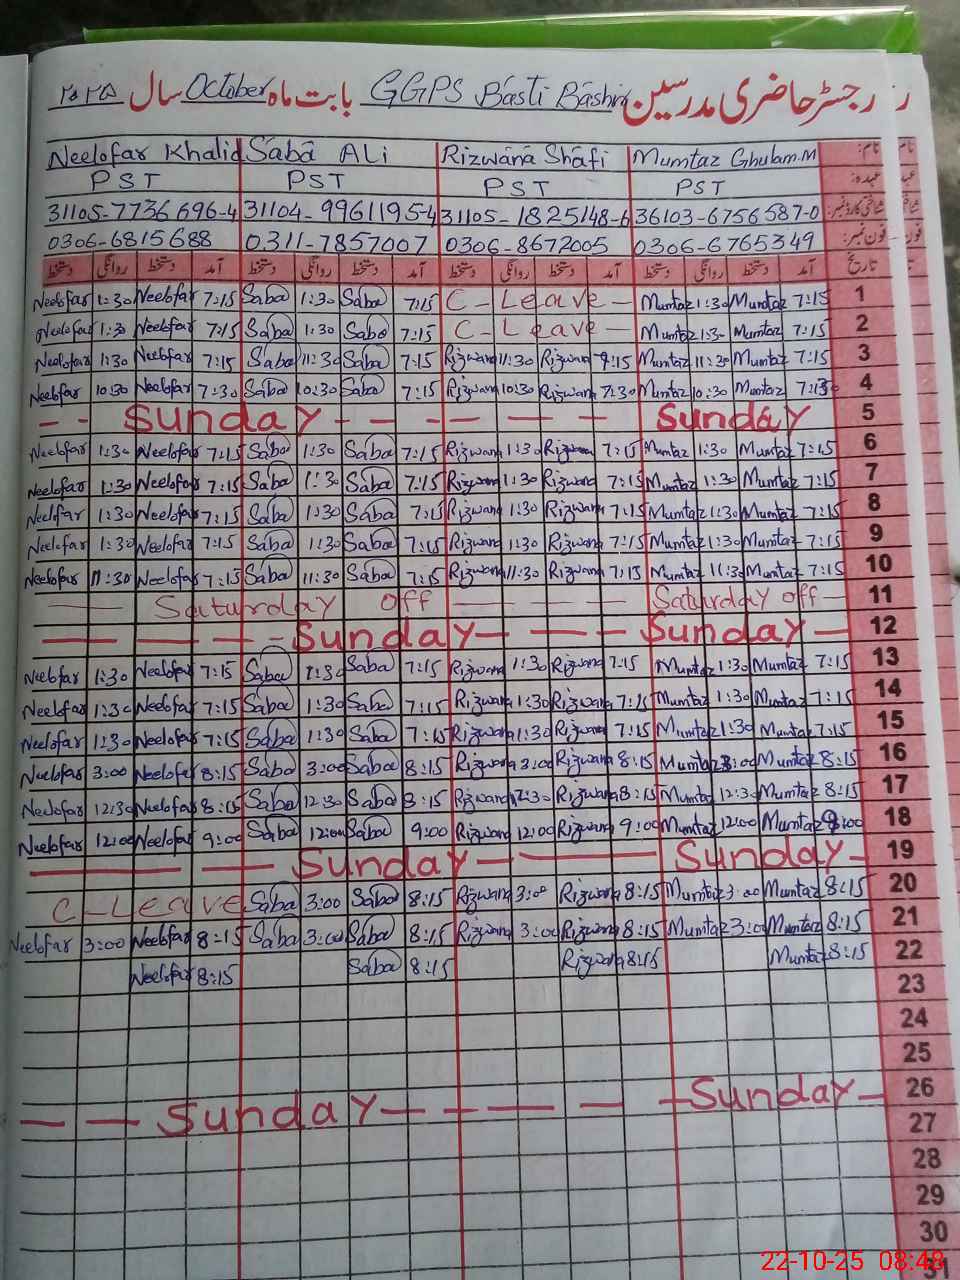 رجسٹر حاضری مدرسین GGPS Basti Bashir بابت ماہ October سال ۲۰۲۵
Neelofar Khalid Saba ALi Rizwana Shafi Mumtaz Ghulam.M نام:
PST PST PST PST عہدہ:
31105-7736696-4 31104-9961195-4 31105-1825148-6 36103-6756587-0 شناختی کارڈ نمبر:
0306-6815688 0311-7857007 0306-8672005 0306-6765349 فون نمبر:
دستخط روانگی دستخط آمد دستخط روانگی دستخط آمد دستخط روانگی دستخط آمد دستخط روانگی دستخط آمد تاریخ
Neelofar 1:30 Neelofar 7:15 Saba 1:30 Saba 7:15 C-Leave Mumtaz 1:30 Mumtaz 7:15 1
Neelofar 1:30 Neelofar 7:15 Saba 1:30 Saba 7:15 C-Leave Mumtaz 1:30 Mumtaz 7:15 2
Neelofar 11:30 Neelofar 7:15 Saba 11:30 Saba 7:15 Rizwana 11:30 Rizwana 7:15 Mumtaz 11:30 Mumtaz 7:15 3
Neelofar 10:30 Neelofar 7:30 Saba 10:30 Saba 7:15 Rizwana 10:30 Rizwana 7:30 Mumtaz 10:30 Mumtaz 4
Sunday Sunday 5
Neelofar 1:30 Neelofar 7:15 Saba 1:30 Saba 7:15 Rizwana 1:30 Rizwana 7:15 Mumtaz 1:30 Mumtaz 7:15 6
Neelofar 1:30 Neelofar 7:15 Saba 1:30 Saba 7:15 Rizwana 1:30 Rizwana 7:15 Mumtaz 1:30 Mumtaz 7:15 7
Neelofar 1:30 Neelofar 7:15 Saba 1:30 Saba 7:15 Rizwana 1:30 Rizwana 7:15 Mumtaz 1:30 Mumtaz 7:15 8
Neelofar 1:30 Neelofar 7:15 Saba 1:30 Saba 7:15 Rizwana 1:30 Rizwana 7:15 Mumtaz 1:30 Mumtaz 7:15 9
Neelofar 11:30 Neelofar 7:15 Saba 11:30 Saba 7:15 Rizwana 11:30 Rizwana 7:15 Mumtaz 11:30 Mumtaz 7:15 10
Saturday off Saturday off 11
Sunday Sunday 12
Neelofar 1:30 Neelofar 7:15 Saba 1:30 Saba 7:15 Rizwana 1:30 Rizwana 7:15 Mumtaz 1:30 Mumtaz 7:15 13
Neelofar 1:30 Neelofar 7:15 Saba 1:30 Saba 7:15 Rizwana 1:30 Rizwana 7:15 Mumtaz 1:30 Mumtaz 7:15 14
Neelofar 1:30 Neelofar 7:15 Saba 1:30 Saba 7:15 Rizwana 1:30 Rizwana 7:15 Mumtaz 1:30 Mumtaz 7:15 15
Neelofar 3:00 Neelofar 8:15 Saba 3:00 Saba 8:15 Rizwana 3:00 Rizwana 8:15 Mumtaz 3:00 Mumtaz 8:15 16
Neelofar 12:30 Neelofar 8:15 Saba 12:30 Saba 8:15 Rizwana 12:30 Rizwana 8:15 Mumtaz 12:30 Mumtaz 8:15 17
Neelofar 12:00 Neelofar 9:00 Saba 12:00 Saba 9:00 Rizwana 12:00 Rizwana 9:00 Mumtaz 12:00 Mumtaz 9:00 18
Sunday Sunday 19
C-Leave Saba 3:00 Saba 8:15 Rizwana 3:00 Rizwana 8:15 Mumtaz 3:00 Mumtaz 8:15 20
Neelofar 3:00 Neelofar 8:15 Saba 3:00 Saba 8:15 Rizwana 3:00 Rizwana 8:15 Mumtaz 3:00 Mumtaz 8:15 21
Neelofar 8:15 Saba 8:15 Rizwana 8:15 Mumtaz 8:15 22
23
24
25
Sunday Sunday 26
27
28
29
30
31
22-10-25 08:48